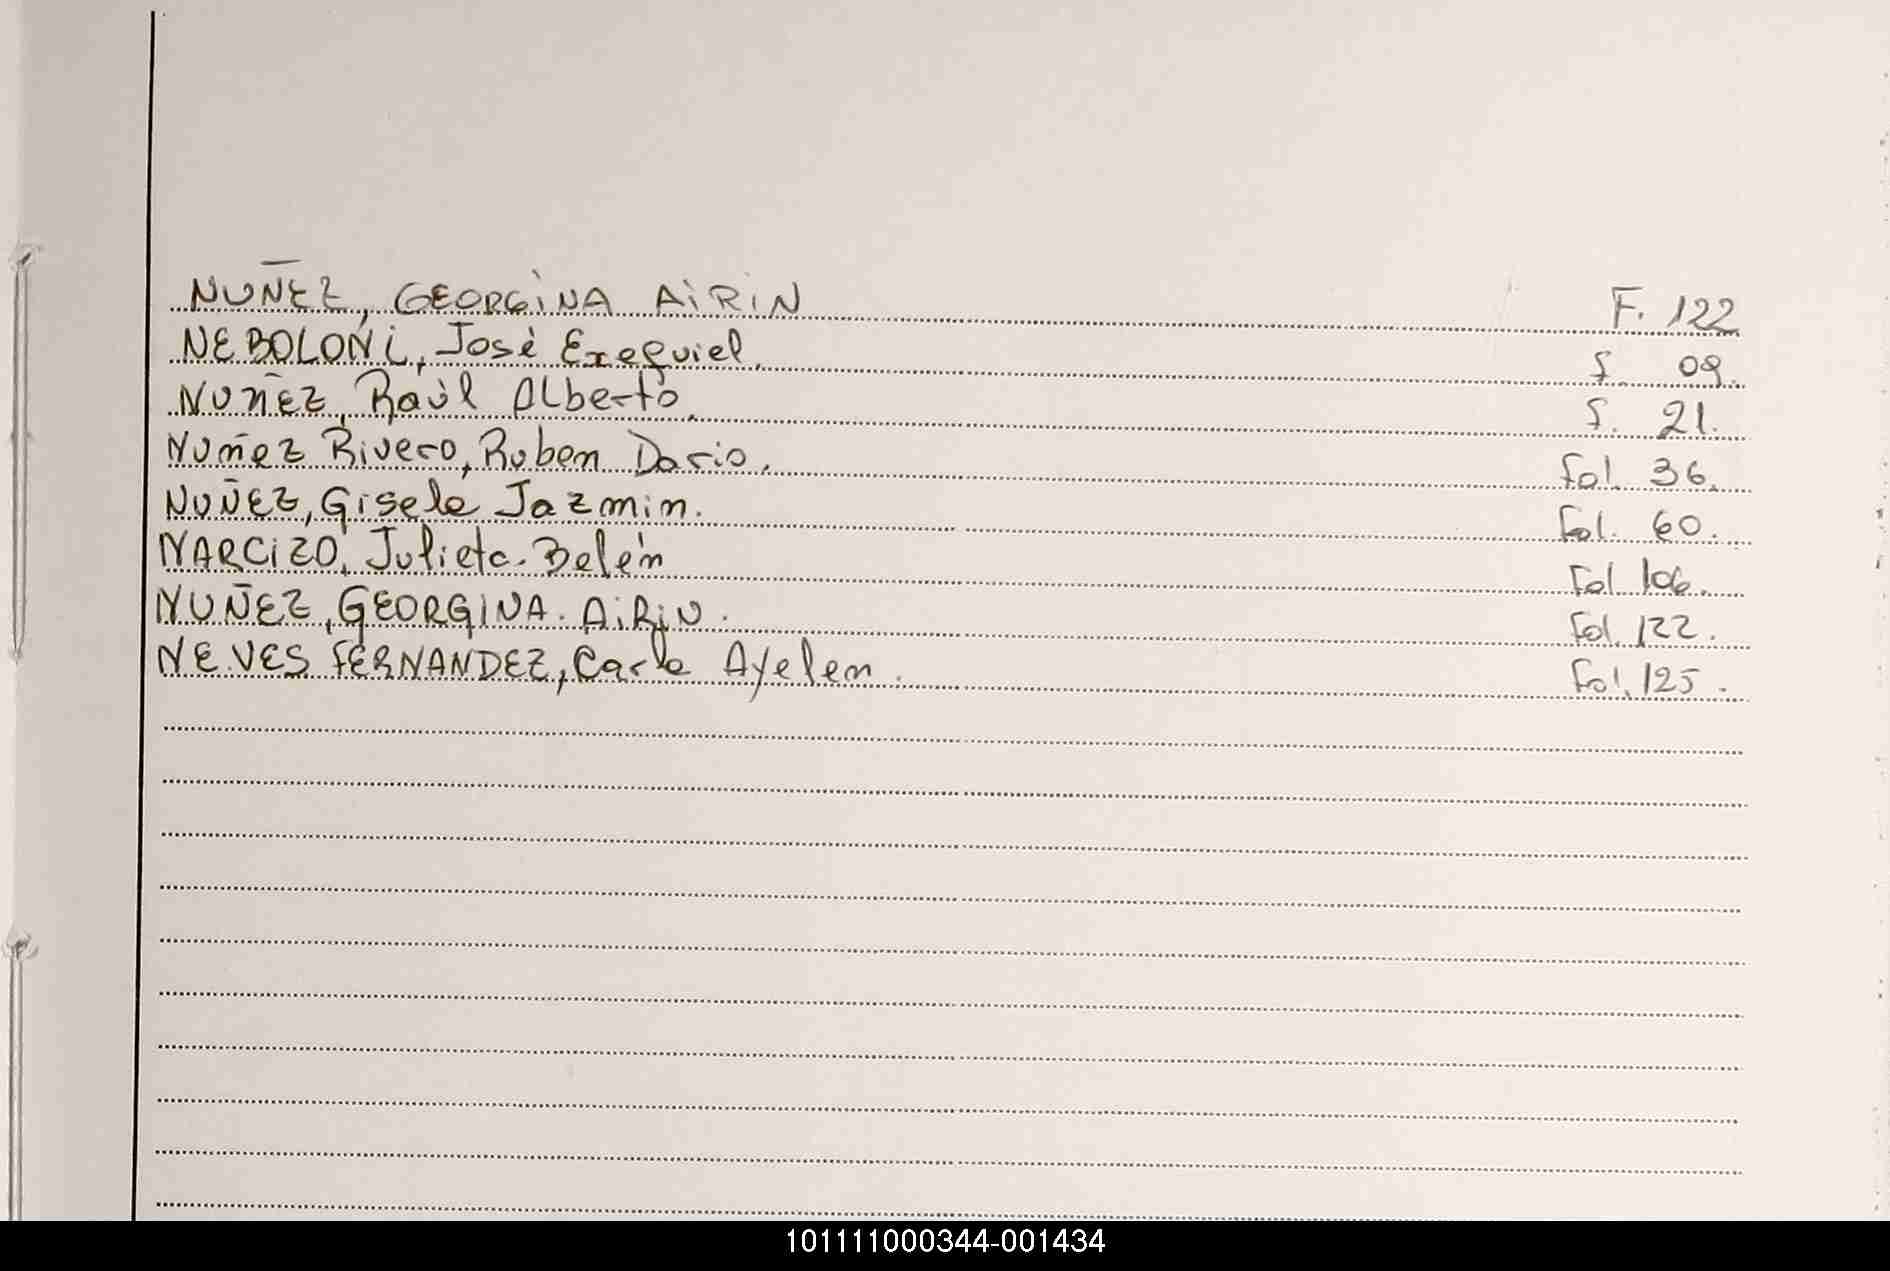 NUÑEZ, GEORGINA AiRiN F. 122
NEBOLONi, José Exequiel. f. 09.
NUñEZ, Raúl Alberto. f. 21.
Nuñez Rivero, Ruben Dario. Fol. 36.
NUÑEZ, Gisele Jazmin. Fol. 60.
NARCiZO, Julieta Belén Fol 106.
NUÑEZ, GEORGINA AiRiN. Fol. 122.
NEVES FERNANDEZ, Carla Ayelen. Fol. 125.
101111000344-001434